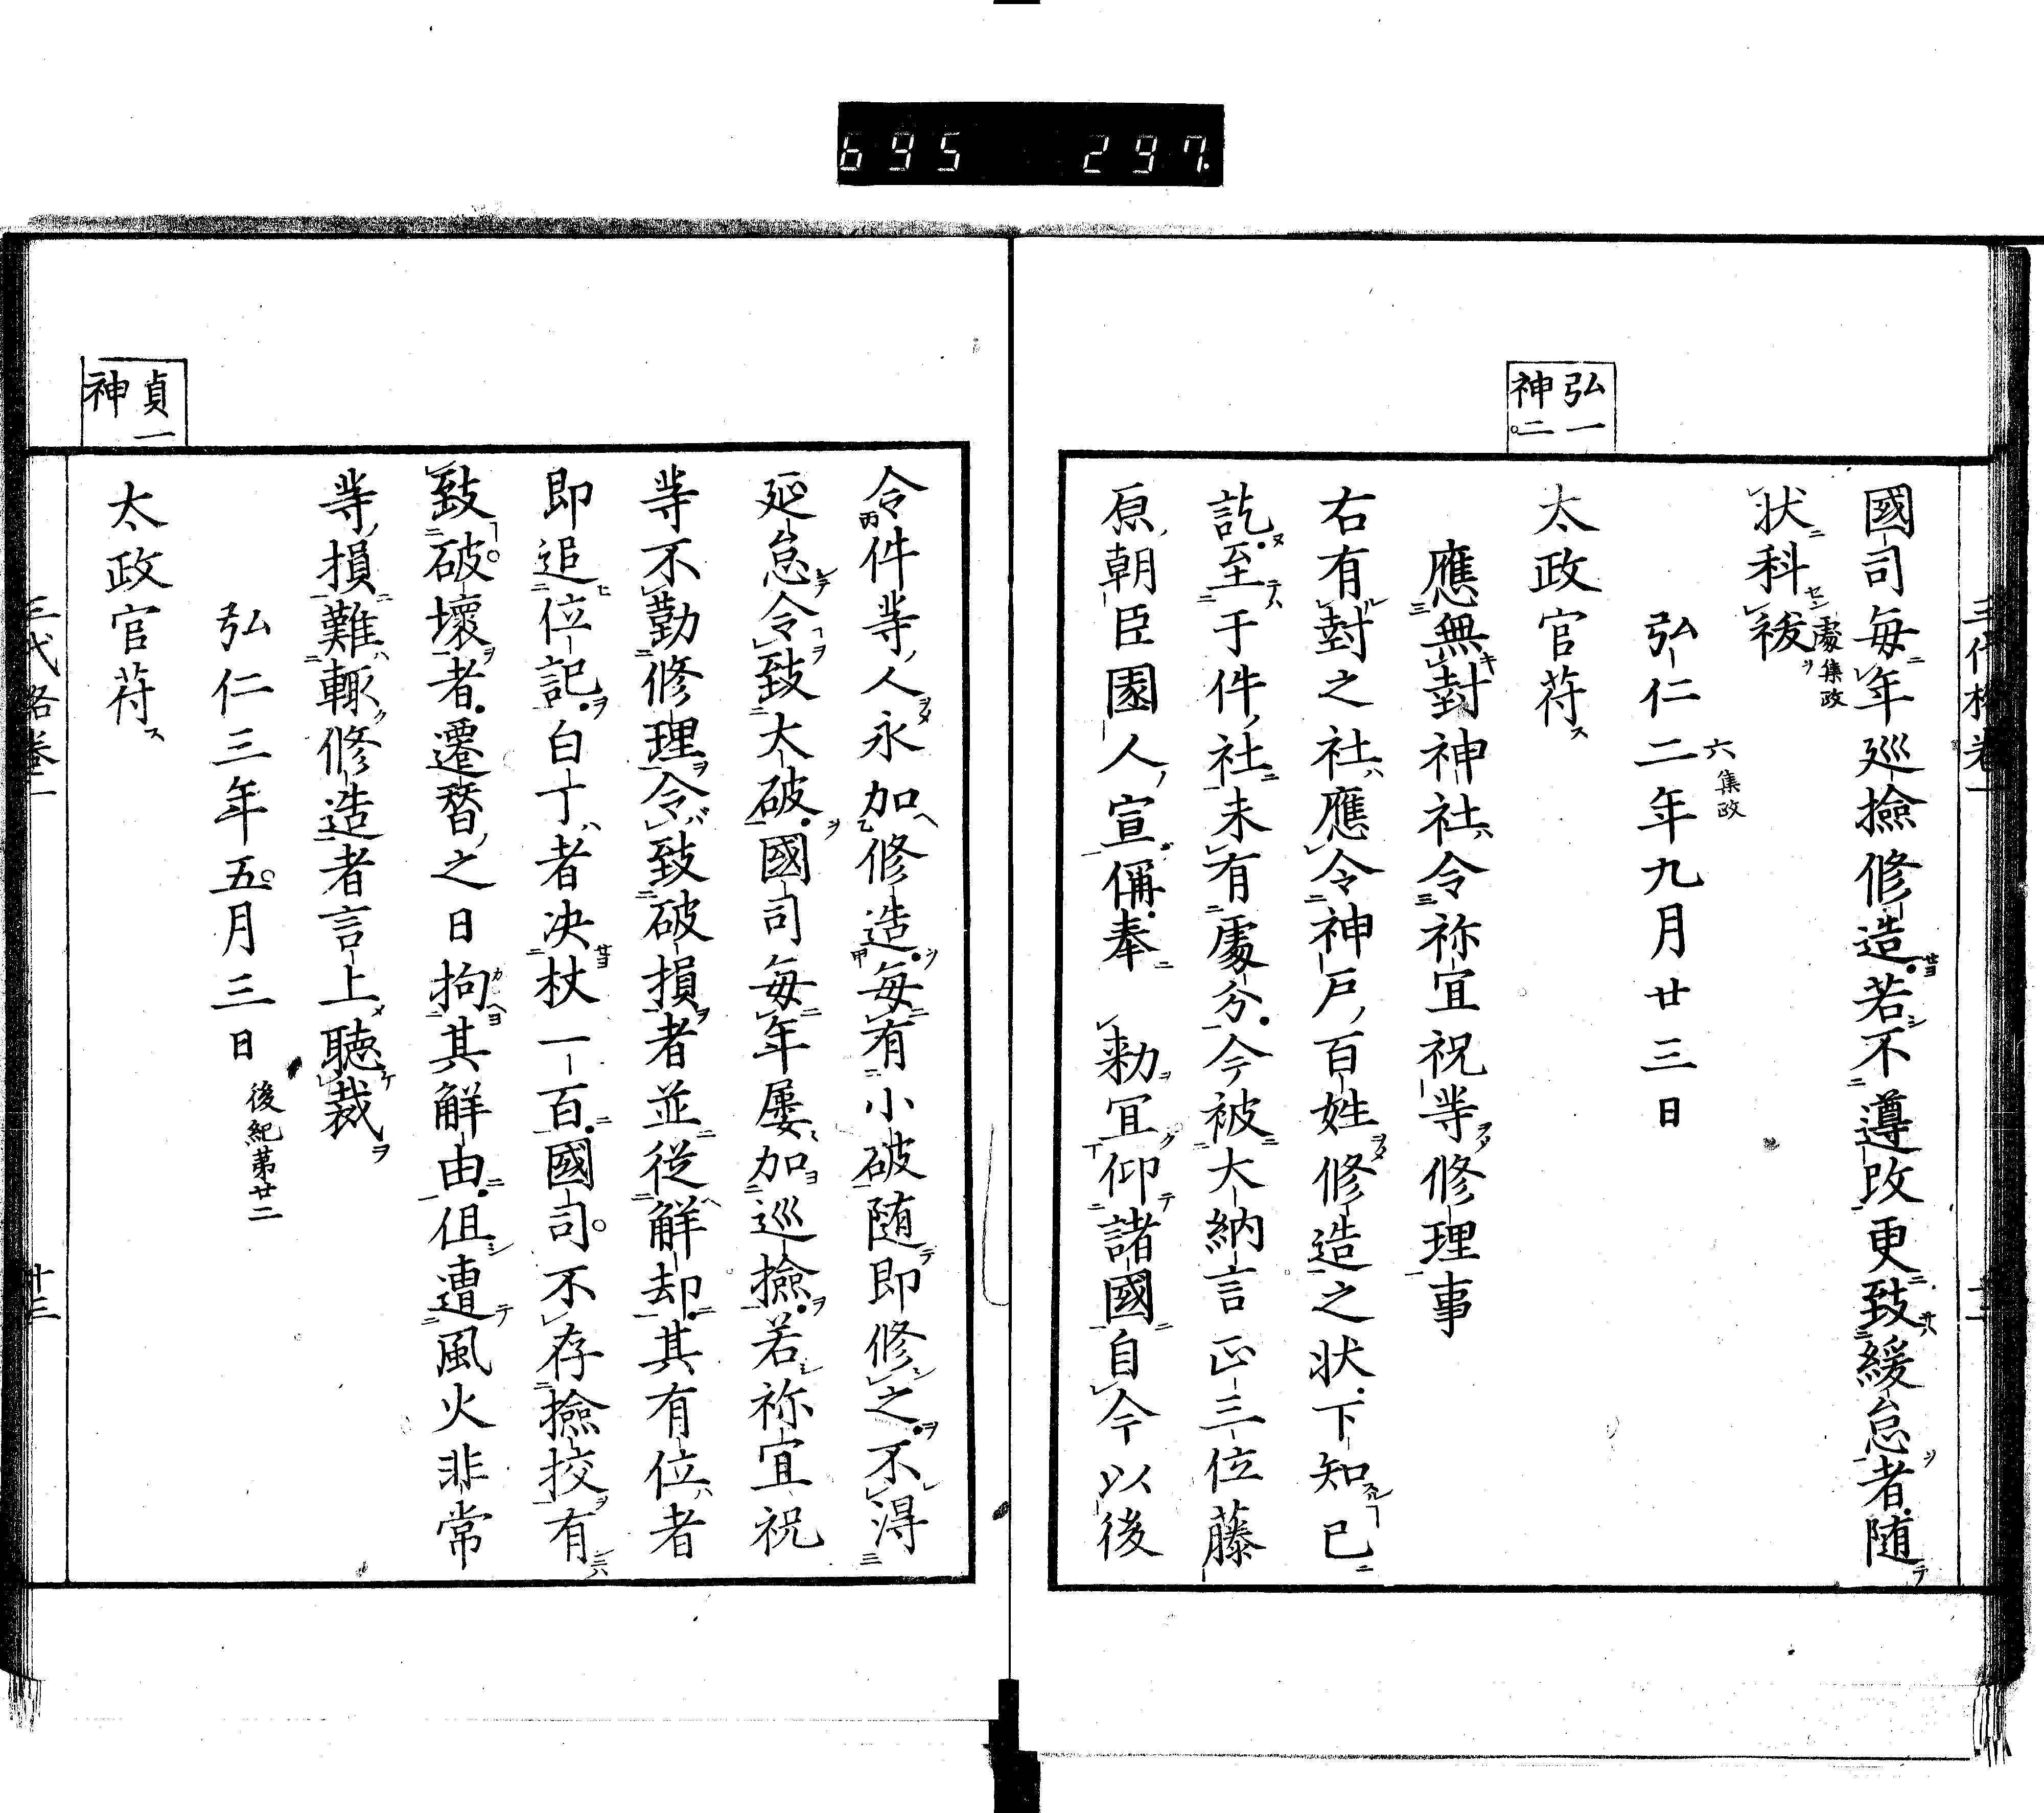 695 297.
弘一
神二
國司毎年巡撿修造若不遵改更致緩怠者随
状科祓
處集政
六集政
弘仁二年九月廿三日
太政官苻
應無封神社令祢宜祝等修理事
右有封之社應令神戸百姓修造之状下知已
訖至于件社未有處分今被大納言正三位藤
原朝臣園人宣偁奉 勅宜仰諸國自今以後
令件等人永加修造毎有小破随即修之不得
延怠令致大破國司毎年屢加巡撿若祢宜祝
等不勤修理令致破損者並従解却其有位者
即追位記白丁者决杖一百國司不存撿挍有
致破壞者遷替之日拘其解由但遭風火非常
等損難輙修造者言上聴裁
弘仁三年五月三日
後紀第廿二
貞一
神
太政官苻
三代格卷一
十三